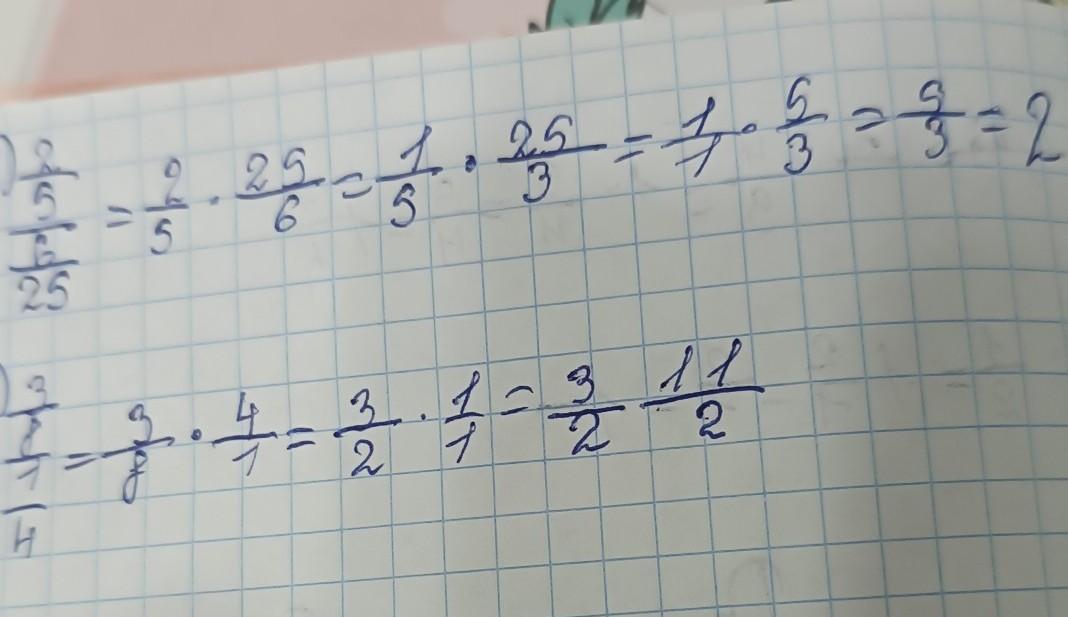 ) 2/5 / 6/25 = 2/5 · 25/6 = 1/5 · 25/3 = 1/1 · 5/3 = 5/3 = 2
) 3/8 / 1/4 = 3/8 · 4/1 = 3/2 · 1/1 = 3/2 11/2